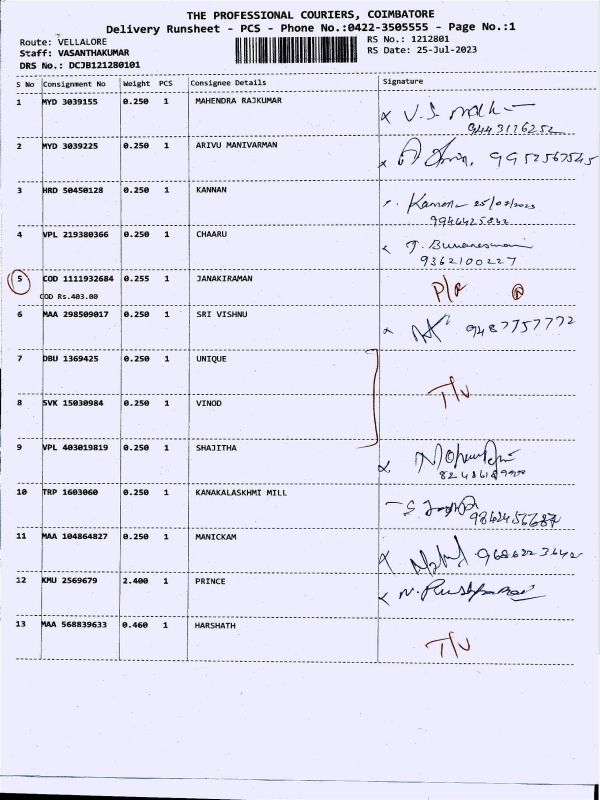 THE PROFESSIONAL COURIERS, COIMBATORE
Delivery Runsheet - PCS - Phone No.:0422-3505555 - Page No.:1
Route: VELLALORE RS No.: 1212801
Staff: VASANTHAKUMAR RS Date: 25-Jul-2023
DRS No.: DCJB121280101
S No Consignment No Weight PCS Consignee Details Signature
1 MYD 3039155 0.250 1 MAHENDRA RAJKUMAR
2 MYD 3039225 0.250 1 ARIVU MANIVARMAN 9952567545
3 HRD 50450128 0.250 1 KANNAN Kannan 25/07/2023
4 VPL 219380366 0.250 1 CHAARU
9362100227
5 COD 1111932684 0.255 1 JANAKIRAMAN
COD Rs.403.00
6 MAA 298509017 0.250 1 SRI VISHNU 9487757772
7 DBU 1369425 0.250 1 UNIQUE
T/v
8 SVK 15030984 0.250 1 VINOD
9 VPL 403019819 0.250 1 SHAJITHA
10 TRP 1603060 0.250 1 KANAKALASKHMI MILL
11 MAA 104864827 0.250 1 MANICKAM
12 KMU 2569679 2.400 1 PRINCE
13 MAA 568839633 0.460 1 HARSHATH T/v